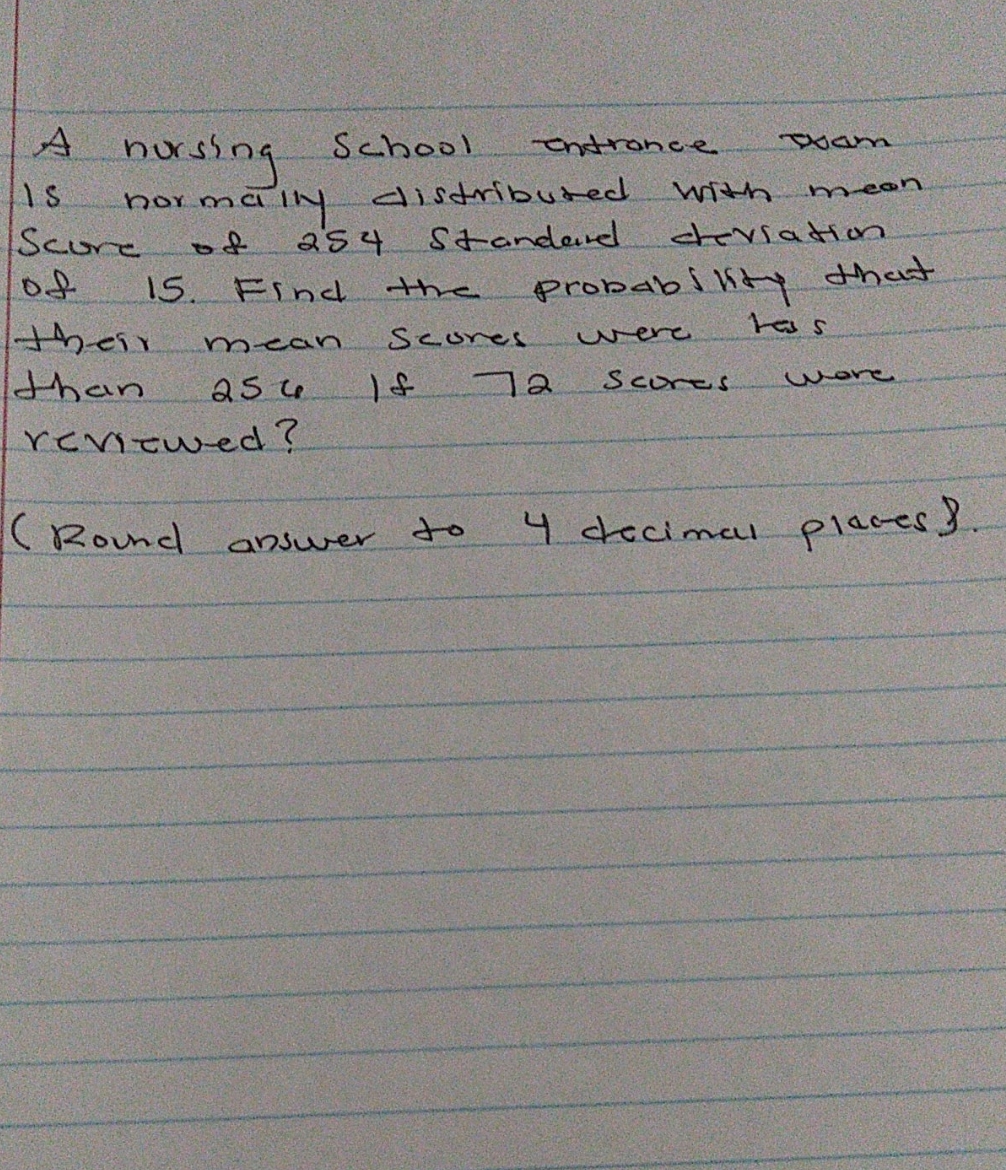 A nursing School entrance exam
Is normally distributed with mean
Score of 254 Standard deviation
of 15. Find the probability that
their mean Scores were less
than 256 If 72 Scores were
reviewed?
(Round answer to 4 decimal places}.